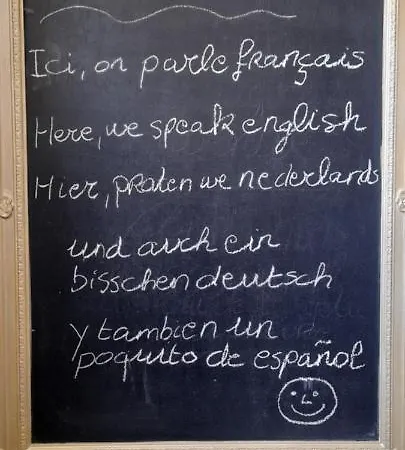 Ici, on parle français
Here, we speak english
Hier, praten we nederlands
und auch ein
bisschen deutsch
y tambien un
poquito de español